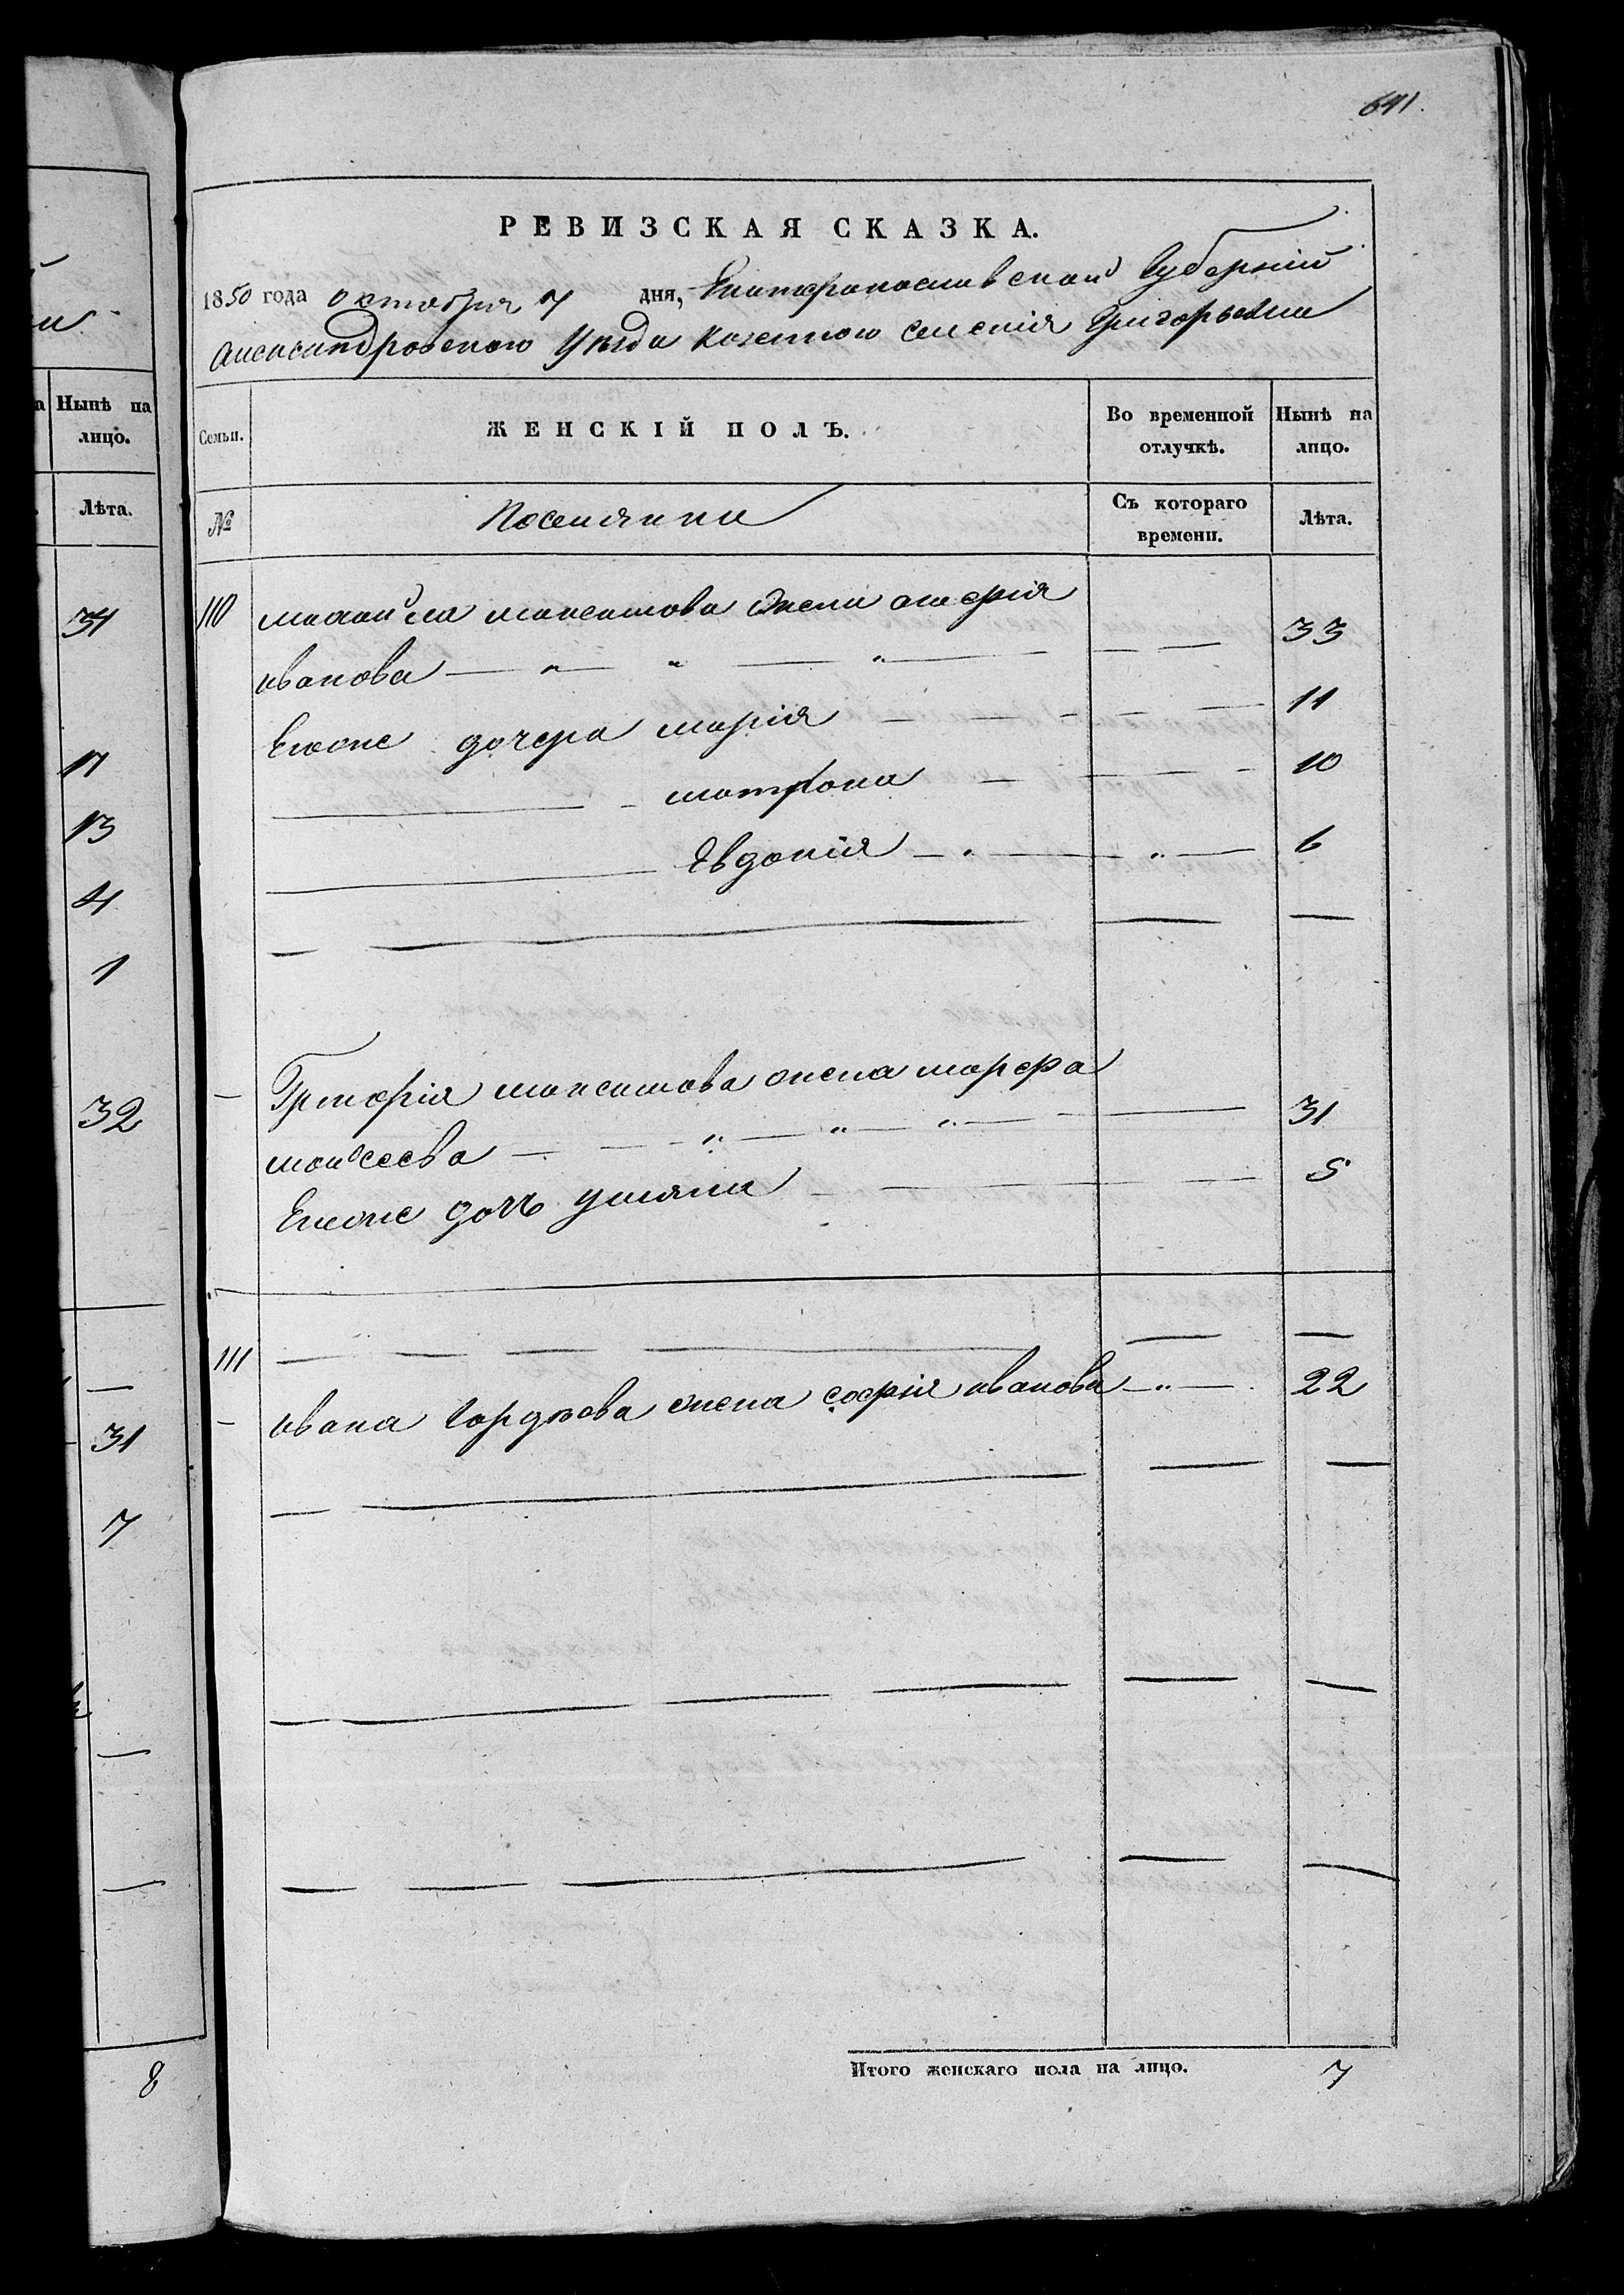 641.
РЕВИЗСКАЯ СКАЗКА.
1850 года октября 7 дня, Екатеринославской Губерніи
Александровского Уезда казенного селенія Григорьевки
Семьи.
ЖЕНСКІЙ ПОЛЪ.
Во временной отлучкѣ.
Нынѣ на лицо.
№
Поселянки
Съ котораго времени.
Лѣта.
110 михайла максимова жена
иванова — „ — „ — „ — — — 33
Его же дочера марія — — — — — 11
— — матрона — — — — 10
— Евдокія — „ — „ — 6
— Григорія максимова жена марфа
мойсеева — — — „ — „ — „ — — 31
Его же дочъ уляна — — — — 5
111 — — — — — —
— ивана гордѣева жена софрія иванова — „ — 22
Итого женскаго пола на лицо. 7
Нынѣ на лицо.
Лѣта.
34
17
13
4
1
32
—
31
7
—
—
8